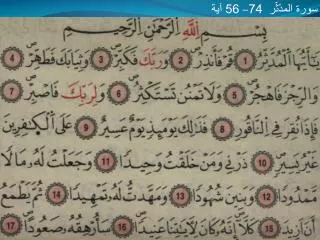 سورة المدّثّر 74– 56 آية
بِسْمِ اللَّهِ الرَّحْمَٰنِ الرَّحِيمِ
يَٰٓأَيُّهَا الْمُدَّثِّرُ ١ قُمْ فَأَنذِرْ ٢ وَرَبَّكَ فَكَبِّرْ ٣ وَثِيَابَكَ فَطَهِّرْ ٤
وَالرُّجْزَ فَاهْجُرْ ٥ وَلَا تَمْنُن تَسْتَكْثِرُ ٦ وَلِرَبِّكَ فَاصْبِرْ ٧
فَإِذَا نُقِرَ فِي النَّاقُورِ ٨ فَذَٰلِكَ يَوْمَئِذٍ يَوْمٌ عَسِيرٌ ٩ عَلَى الْكَٰفِرِينَ
غَيْرُ يَسِيرٍ ١٠ ذَرْنِي وَمَنْ خَلَقْتُ وَحِيدًا ١١ وَجَعَلْتُ لَهُ مَالًا
مَّمْدُودًا ١٢ وَبَنِينَ شُهُودًا ١٣ وَمَهَّدتُّ لَهُ تَمْهِيدًا ١٤ ثُمَّ يَطْمَعُ
أَنْ أَزِيدَ ١٥ كَلَّا إِنَّهُ كَانَ لِآيَٰتِنَا عَنِيدًا ١٦ سَأُرْهِقُهُ صَعُودًا ١٧